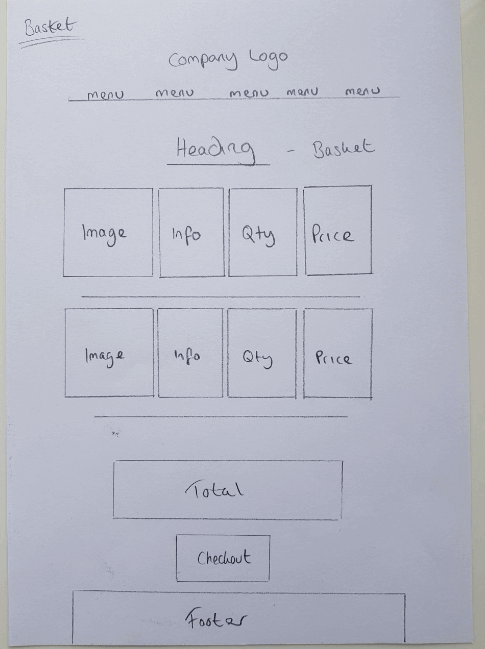 Basket
Company Logo
menu menu menu menu menu
Heading - Basket
Image Info Qty Price
Image Info Qty Price
Total
Checkout
Footer